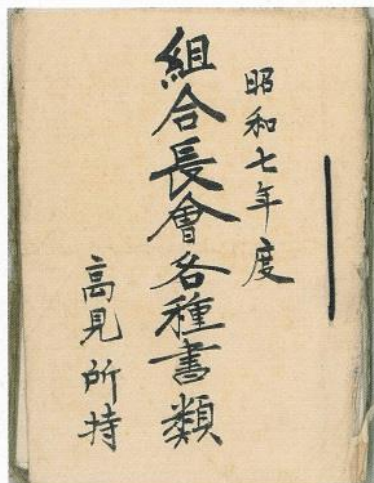 昭和七年度
組合長會各種書類
高見所持